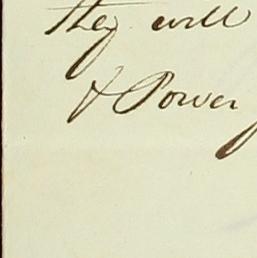 they will
& Power